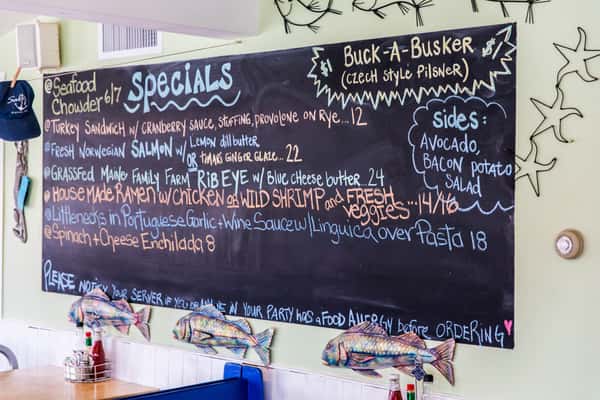 @ Seafood Chowder 6/7
Specials
Buck-A-Busker
(Czech Style Pilsner)
$1
@ Turkey Sandwich w/ Cranberry Sauce, Stuffing, Provolone on Rye...12
@ Fresh Norwegian Salmon w/ Lemon dill butter
OR Tamari Ginger Glaze...22
@ Grassfed Maine Family Farm Ribeye w/ Blue cheese butter..24
@ House Made Ramen w/ Chicken or Wild Shrimp and Fresh veggies...14/16
@ Littlenecks in Portuguese Garlic + Wine Sauce w/ Linguica over Pasta 18
@ Spinach + Cheese Enchilada 8
sides:
Avocado,
Bacon potato
Salad
Please notify your server if you or anyone in your party has a food allergy before ordering